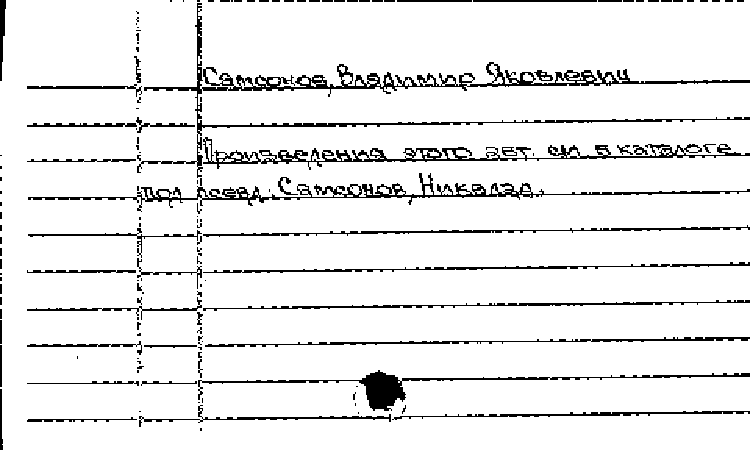 Самсонов, Владимир Яковлевич
Произведения этого авт. см. в каталоге
под псевд.: Самсонов, Николас.